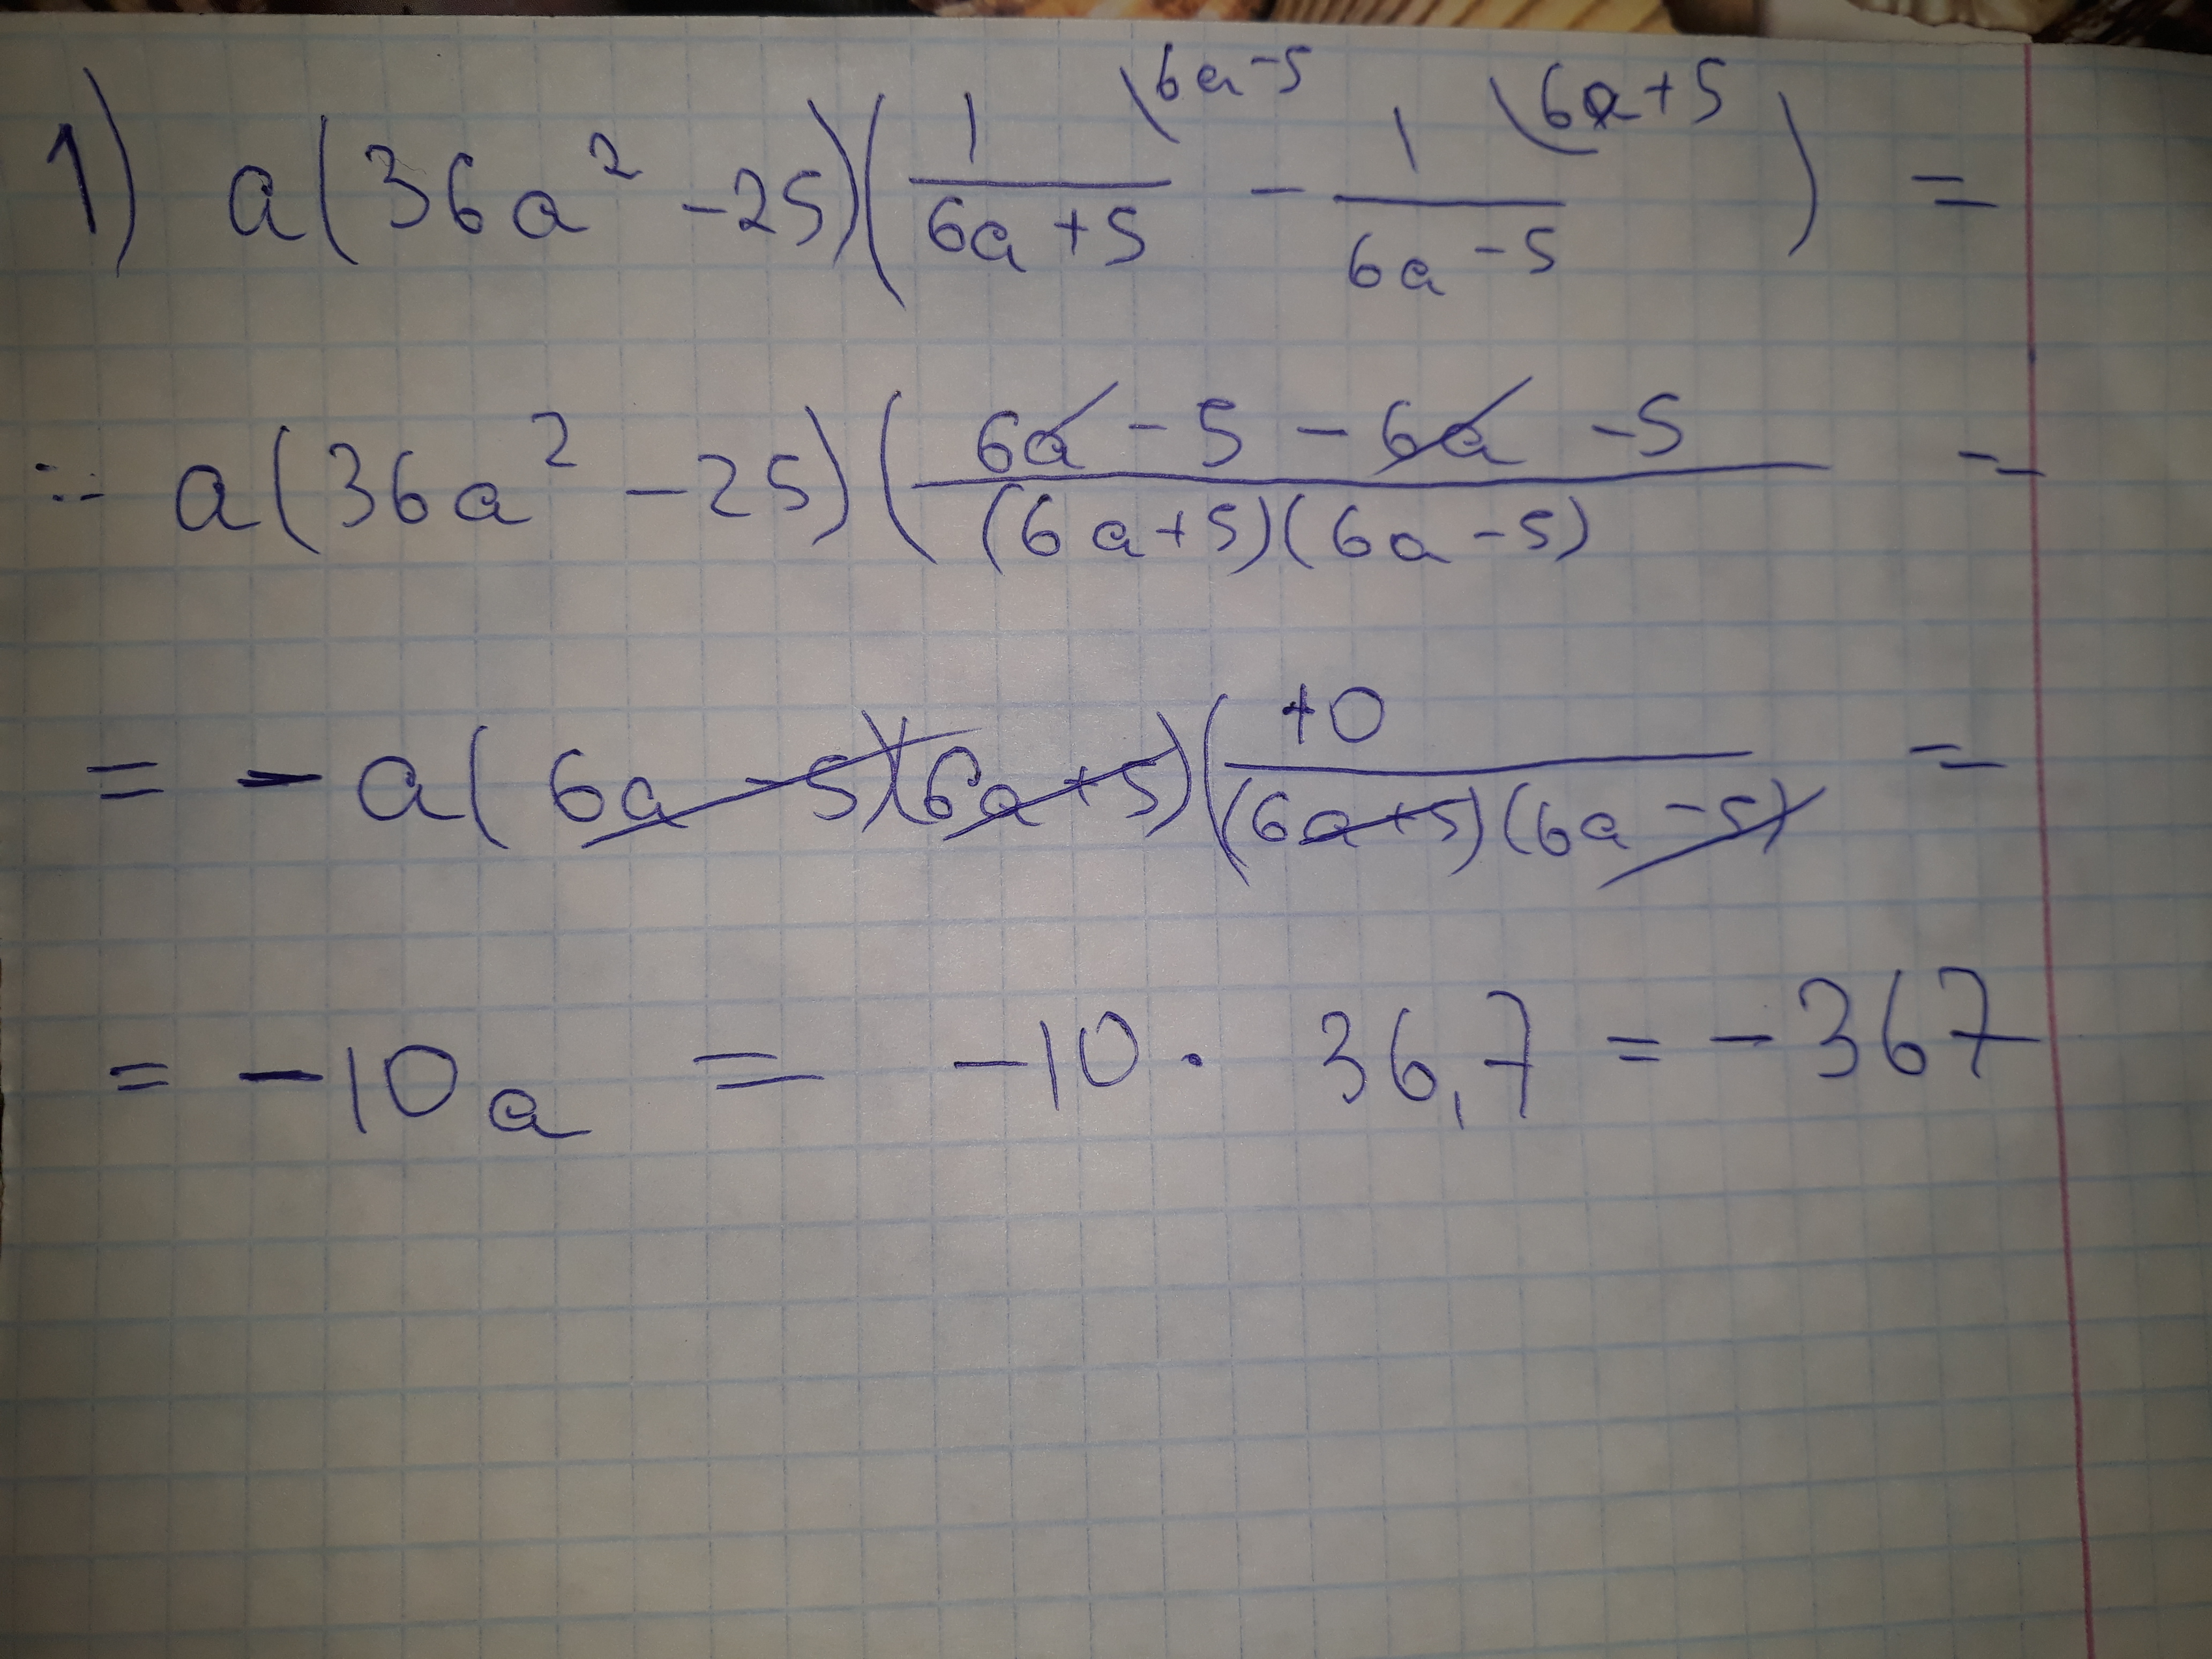 1) a(36a² -25)(1/(6a+5) \6a-5 - 1/(6a-5) \6a+5) =
= a(36a² -25)((6a-5-6a-5)/((6a+5)(6a-5)) =
= -a(6a-5)(6a+5)(10/((6a+5)(6a-5)) =
= -10a = -10· 36,7 = -367